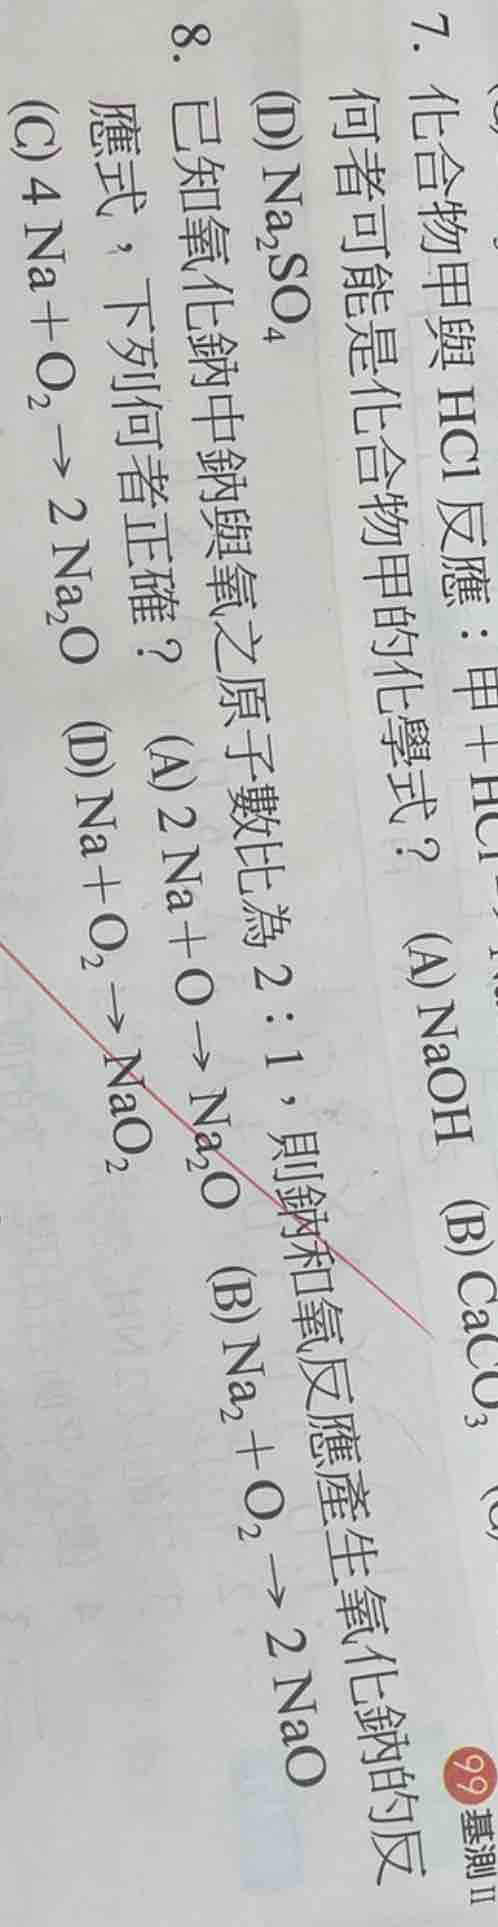 7. 化合物甲與 HCl 反應：甲＋HCl
99 基測 II
何者可能是化合物甲的化學式？ (A) NaOH (B) CaCO₃
(D) Na₂SO₄
8. 已知氧化鈉中鈉與氧之原子數比為 2：1，則鈉和氧反應產生氧化鈉的反
應式，下列何者正確？ (A) 2 Na＋O → Na₂O (B) Na₂＋O₂ → 2 NaO
(C) 4 Na＋O₂ → 2 Na₂O (D) Na＋O₂ → NaO₂